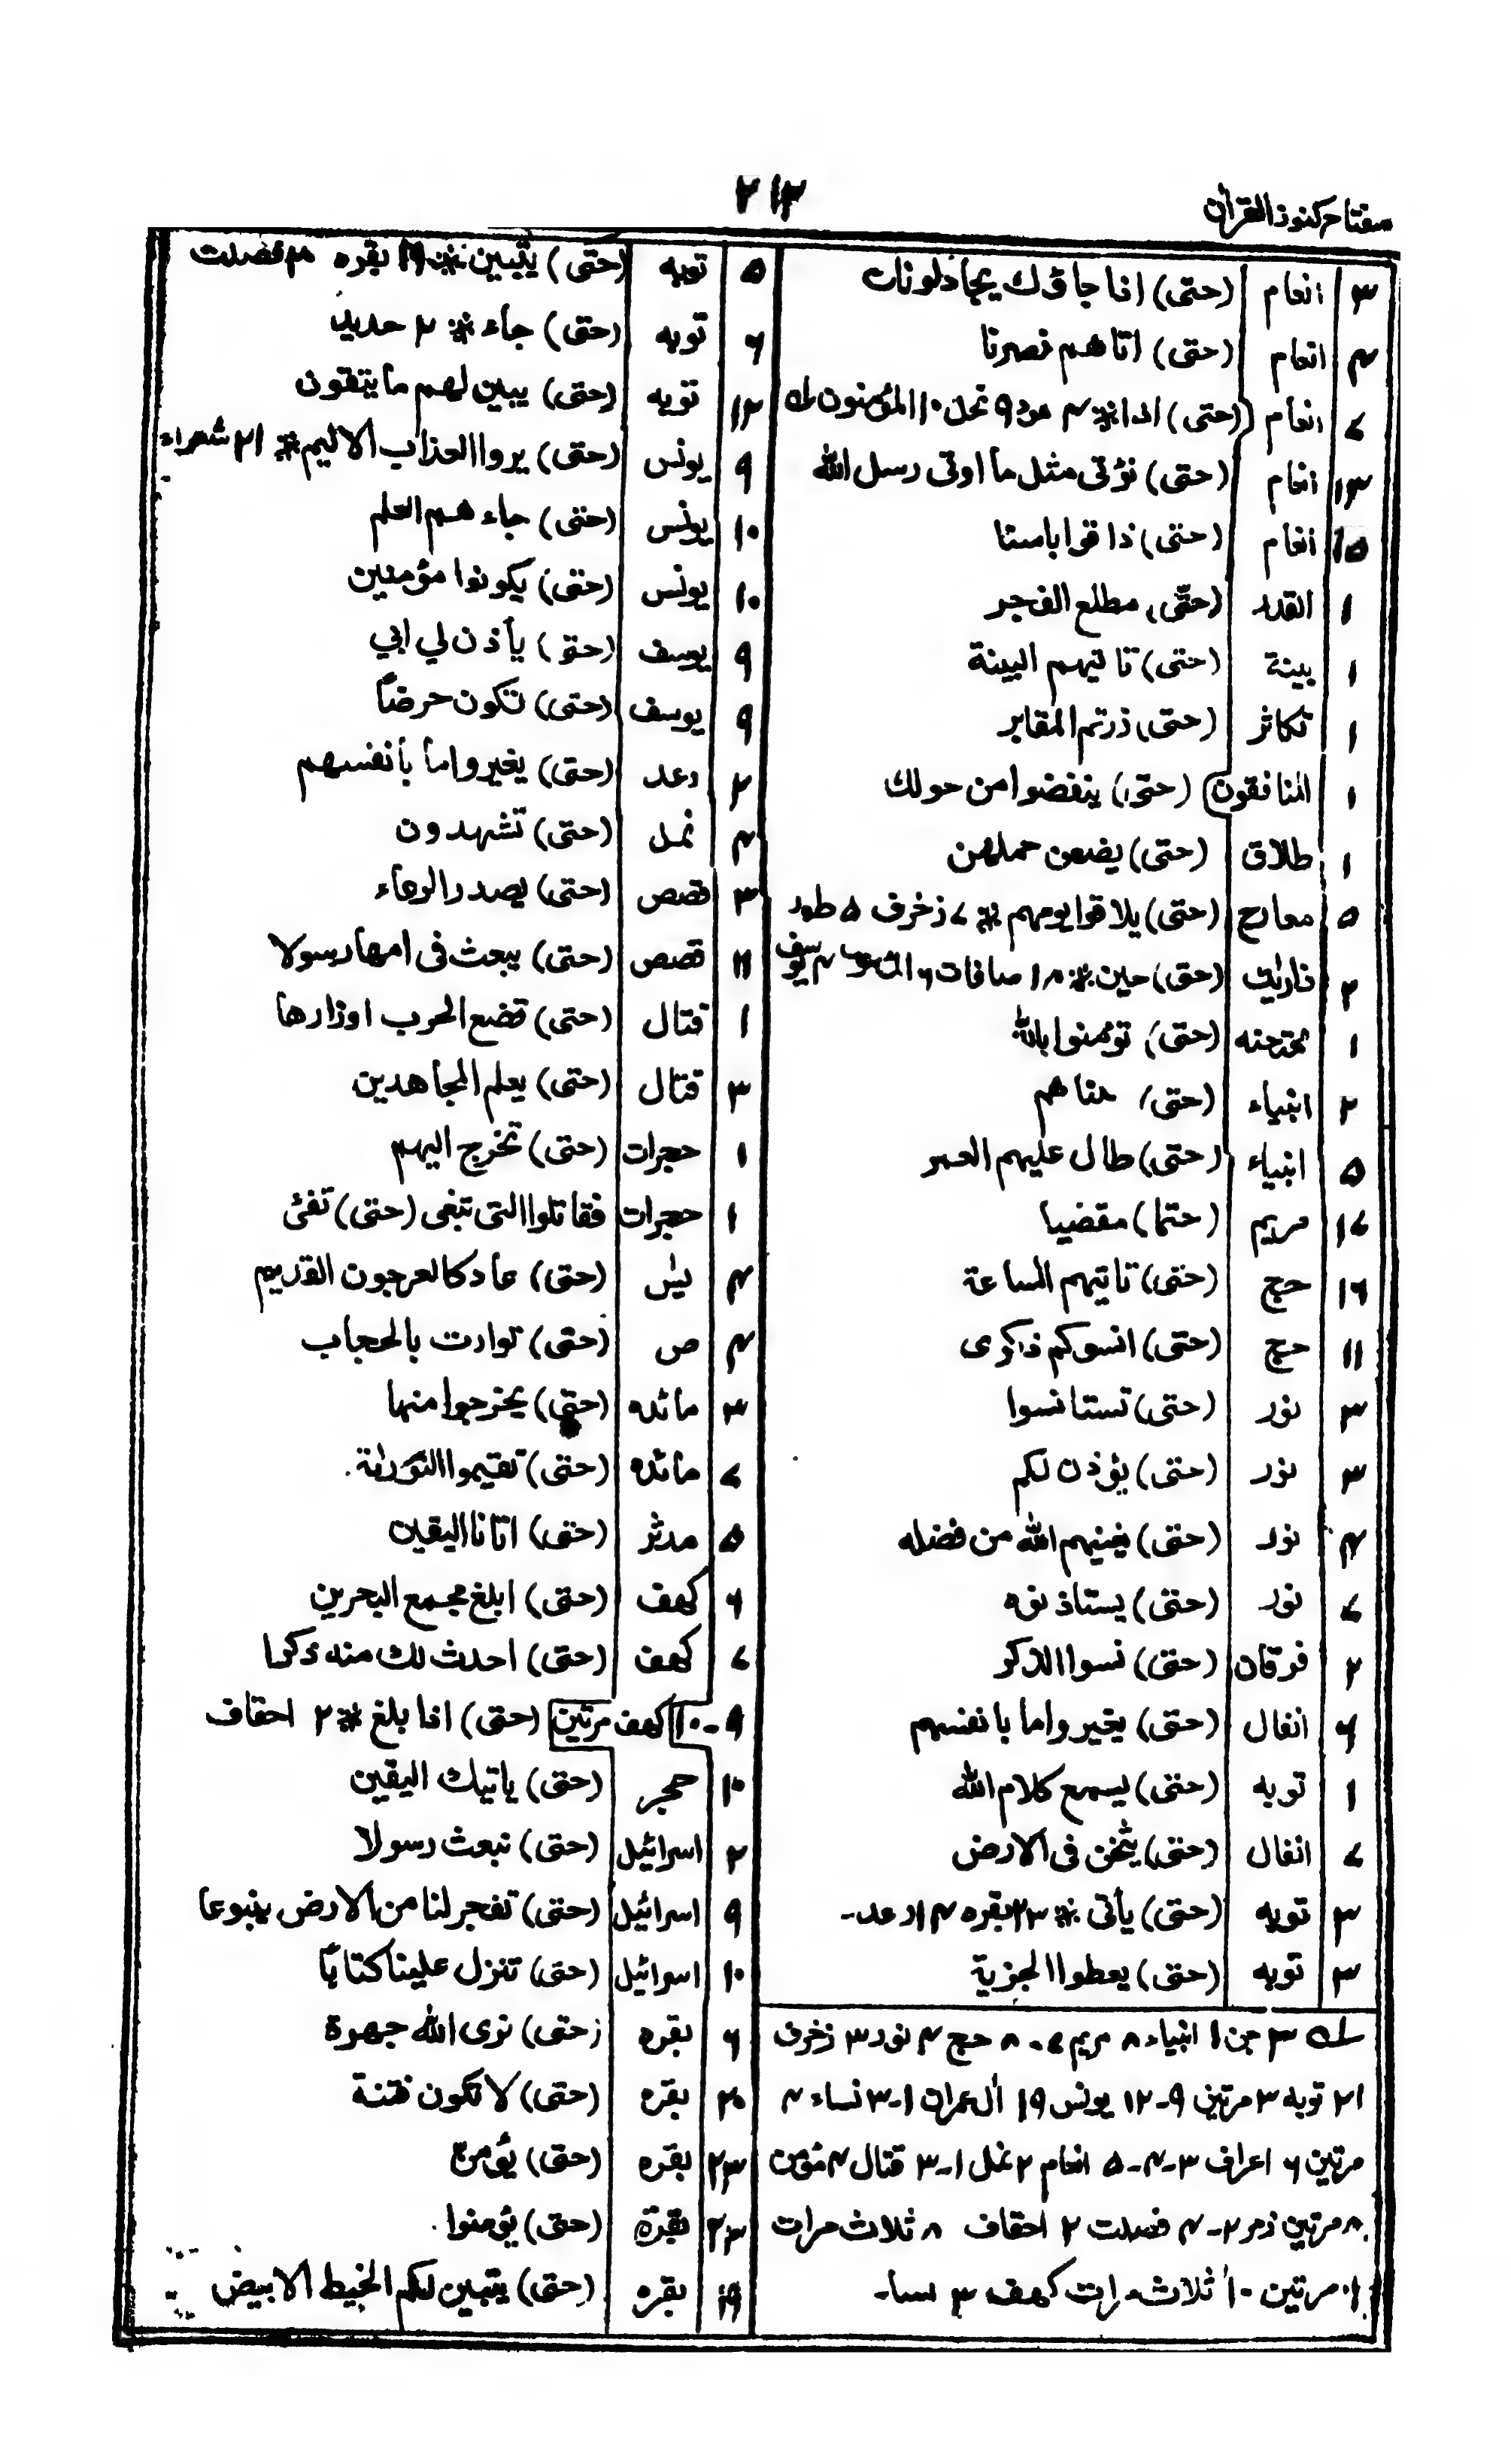 مفتاح كنوز القرآن
۲۱۳
۳ انعام (حتى) اذا جاؤك يجادلونك
۴ انعام (حتى) اتاهم نصرنا
۷ انعام (حتى) اذا * ۴ هود ۹ نحل ۱۰ المؤمنون له
۱۳ انعام (حتى) نؤتى مثل ما اوتى رسل الله
۱۵ انعام (حتى) ذاقوا باسنا
۱ القدر (حتّى) مطلع الفجر
۱ بينة (حتى) تاتيهم البينة
۱ تكاثر (حتى) زرتم المقابر
۱ المنافقون (حتى) ينفضوا من حولك
۱ طلاق (حتى) يضعن حملهن
۵ معارج (حتى) يلاقوا يومهم * ۷ زخرف ۵ طور
۲ ذاريات (حتى) حين * ۱۸ صافات ۶ ۴ يوسف
۱ ممتحنه (حتى) تؤمنوا بالله
۲ انبياء (حتى)
۵ انبياء (حتى) طال عليهم العمر
۱۷ مريم (حتما) مقضيا
۱۶ حج (حتى) تاتيهم الساعة
۱۱ حج (حتى) انسوكم ذكرى
۳ نور (حتى) تستانسوا
۳ نور (حتى) يؤذن لكم
۴ نور (حتى) يغنيهم الله من فضله
۷ نور (حتى) يستاذنوه
۲ فرقان (حتى) نسوا الذكر
۶ انفال (حتى) يغيروا ما بانفسهم
۱ توبه (حتى) يسمع كلام الله
۷ انفال (حتى) يثخن فى الارض
۳ توبه (حتى) يأتى * ۱۳ بقره ۴ رعد-
۳ توبه (حتى) يعطوا الجزية
له ۳ جن ۱ انبياء ۸ مريم ۷-۸ حج ۴ نور ۳ زخرف
۲۱ توبه ۳ مرتين ۹-۱۲ يونس ۱۹ ال عمران ۱-۳ نساء ۴
مرتين ۶ اعراف ۳-۴-۵ انعام ۲ نمل ۱-۳ قتال ۴ مؤمن
۸ مرتين زمر ۲-۴ فصلت ۲ احقاف ۸ ثلاث مرات
مرتين ۱۰ ثلاث مرات كهف ۳ سبا-
۵ توبه (حتى) يتبين * ۱۹ بقره فصلت
۶ توبه (حتى) جاء * ۲ حديد
۱۲ توبه (حتى) يبين لهم ما يتقون
۹ يونس (حتى) يروا العذاب الاليم * ۲۱ شعراء
۱۰ يونس (حتى) جاءهم العلم
۱۰ يونس (حتى) يكونوا مؤمنين
۹ يوسف (حتى) يأذن لي ابي
۹ يوسف (حتى) تكون حرضاً
۲ رعد (حتى) يغيروا ما بأنفسهم
۴ نمل (حتى) تشهدون
۳ قصص (حتى) يصدر الرعاء
۱۱ قصص (حتى) يبعث فى امها رسولا
۱ قتال (حتى) تضع الحرب اوزارها
۳ قتال (حتى) يعلم المجاهدين
۱ حجرات (حتى) تخرج اليهم
۱ حجرات فقاتلوا التى تبغى (حتى) تفئ
۴ يس (حتى) عاد كالعرجون القديم
۴ ص (حتى) توارت بالحجاب
۴ مائده (حتى) يخرجوا منها
۷ مائده (حتى) تقيموا التورٰىة.
۵ مدثر (حتى) اتانا اليقين
۶ كهف (حتى) ابلغ مجمع البحرين
۷ كهف (حتى) احدث لك منه ذكرا
۹-۱۰ كهف مرتين (حتى) اذا بلغ * ۲ احقاف
۱۰ حجر (حتى) ياتيك اليقين
۲ اسرائيل (حتى) نبعث رسولا
۹ اسرائيل (حتى) تفجر لنا من الارض ينبوعا
۱۰ اسرائيل (حتى) تنزل علينا كتاباً
۶ بقره (حتى) نرى الله جهرة
۲۰ بقره (حتى) لا تكون فتنة
۲۳ بقره (حتى) يؤمن
۲۳ بقرة (حتى) يؤمنوا.
۱۹ بقره (حتى) يتبين لكم الخيط الابيض